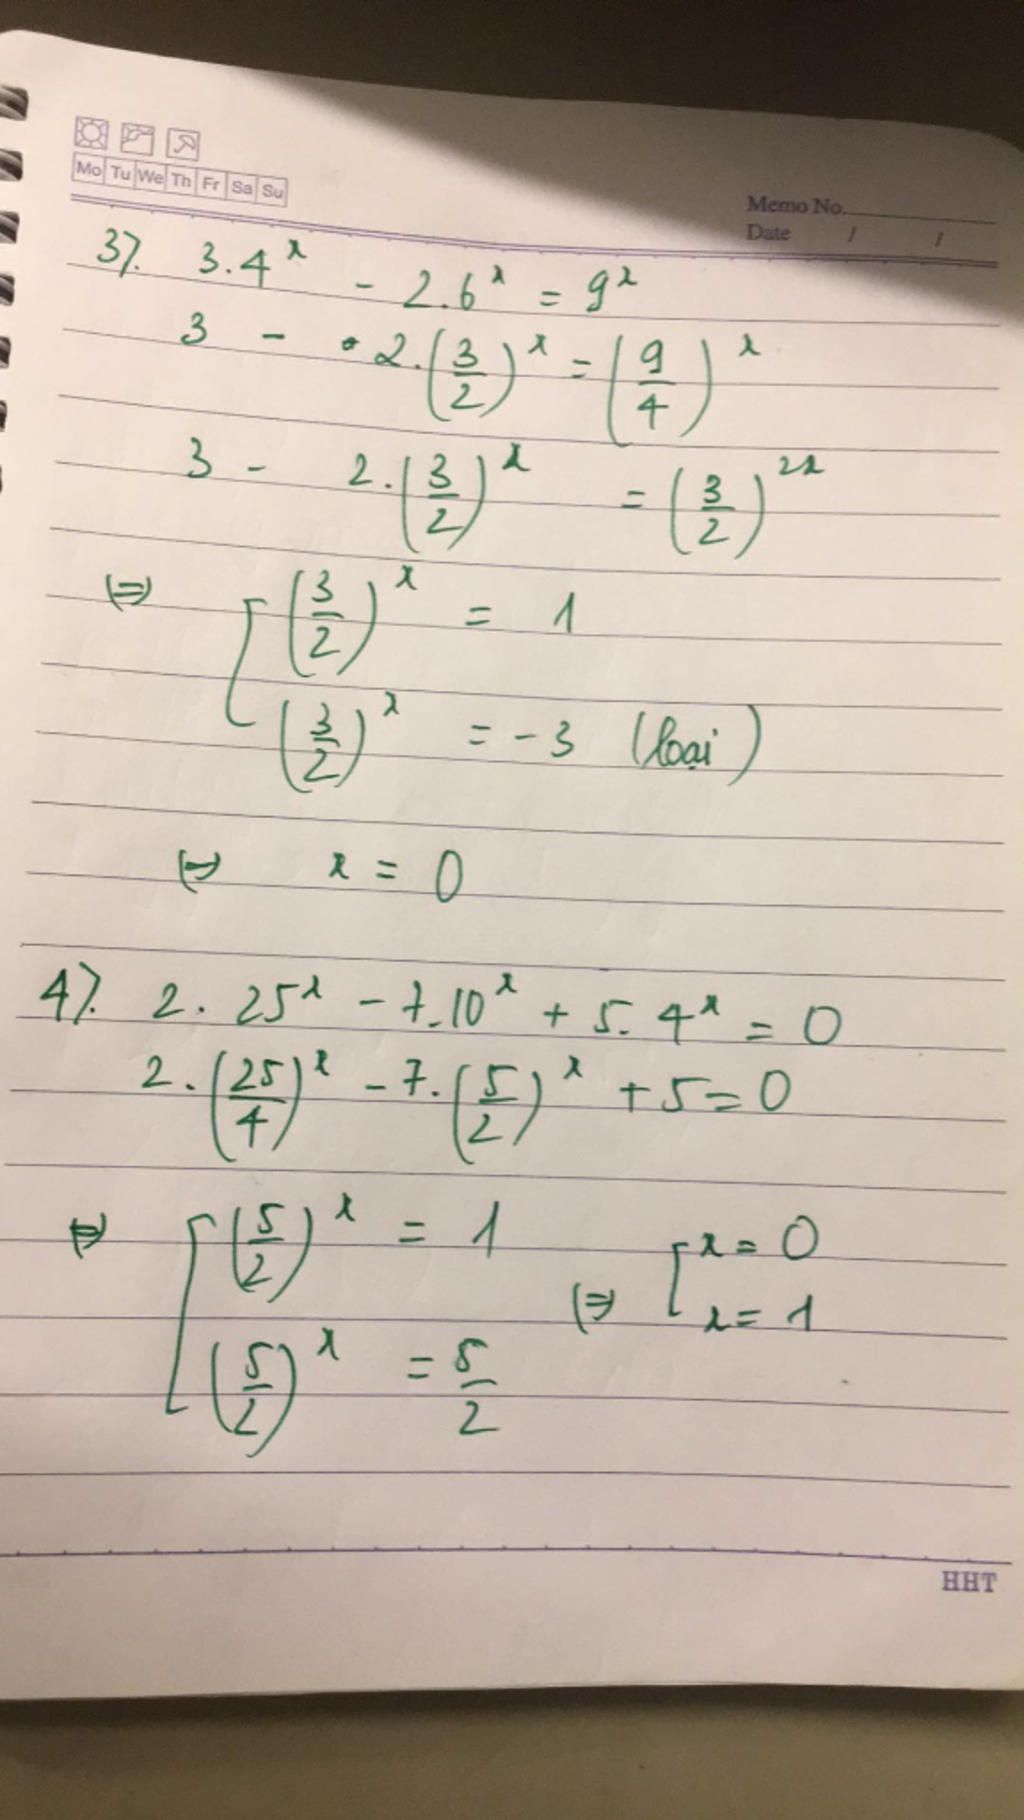 Mo Tu We Th Fr Sa Su
Memo No.
Date / /
3). 3.4^x - 2.6^x = 9^x
3 - 2.(3/2)^x = (9/4)^x
3 - 2.(3/2)^x = (3/2)^2x
⇔ [ (3/2)^x = 1
(3/2)^x = -3 (loại)
⇔ x = 0
4). 2. 25^x - 7.10^x + 5. 4^x = 0
2.(25/4)^x - 7.(5/2)^x + 5 = 0
⇔ [ (5/2)^x = 1
(5/2)^x = 5/2
⇔ [ x = 0
x = 1
HHT